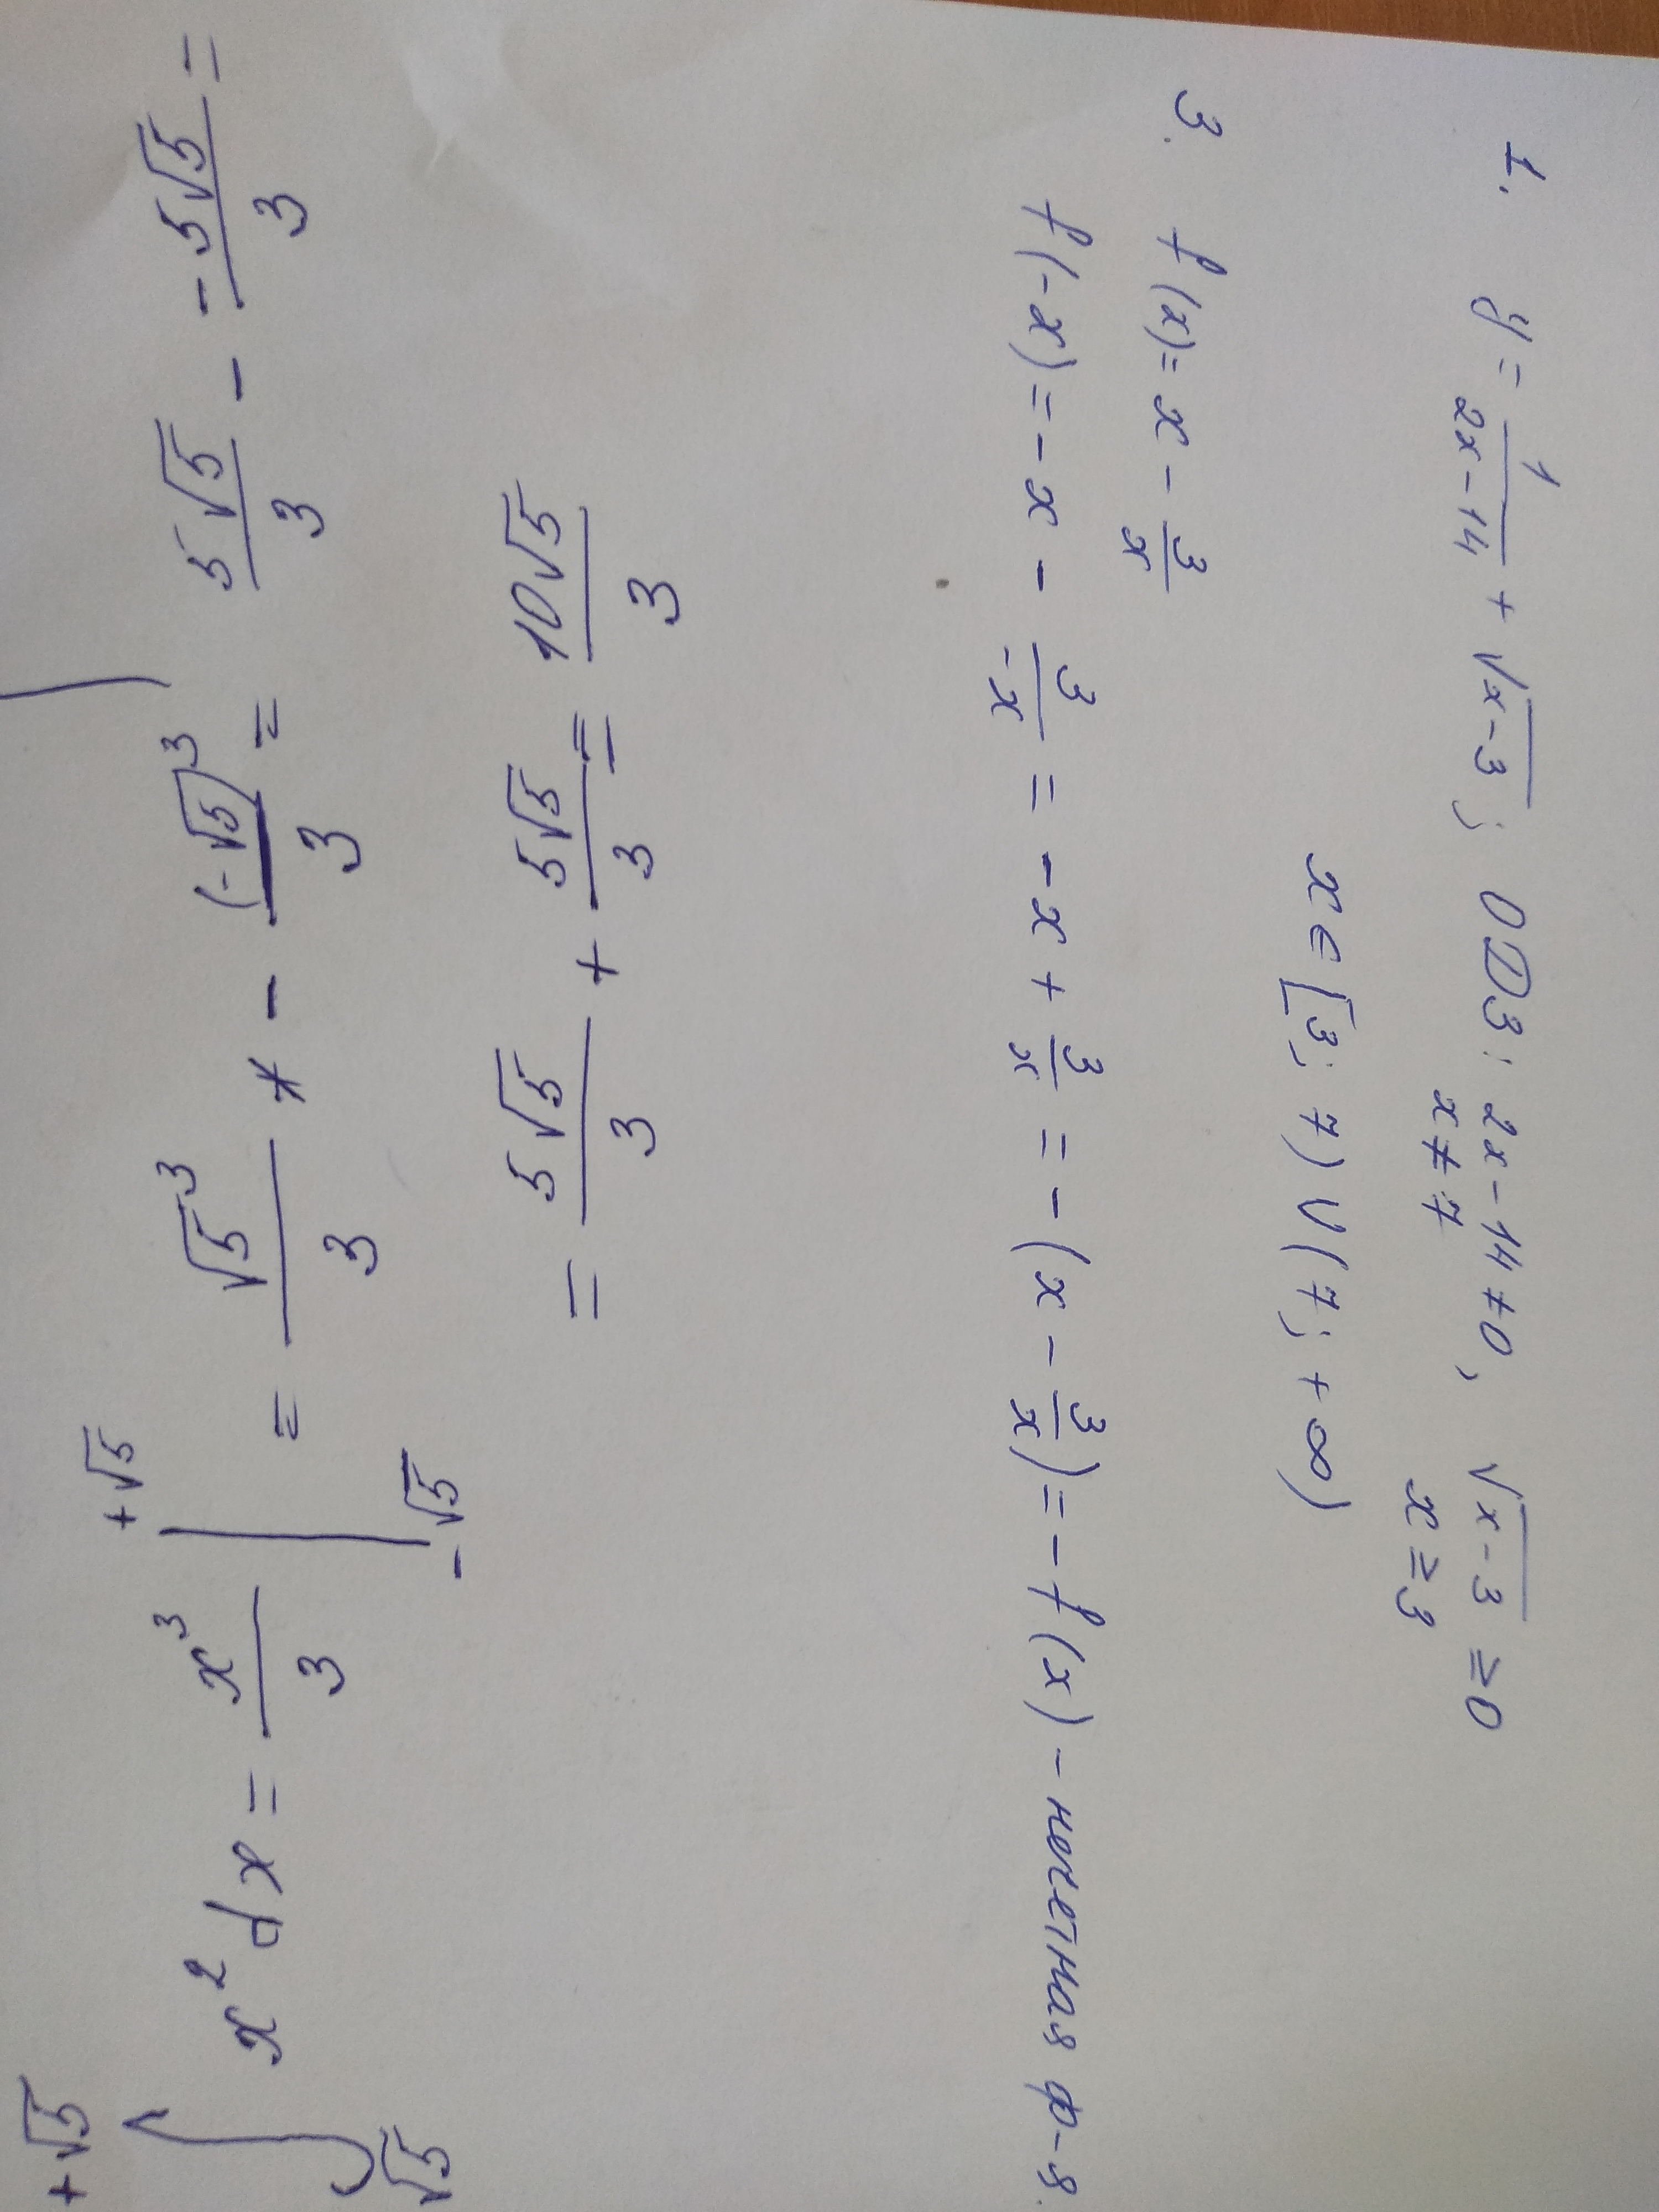 1. y = 1/(2x-14) + √(x-3); ОДЗ: 2x-14≠0, √(x-3) ≥0
x≠7 x≥3
x∈[3; 7)∪(7; +∞)
3. f(x) = x - 3/x
f(-x) = -x - 3/(-x) = -x + 3/x = -(x - 3/x) = -f(x) - нечетная ф-я.
∫_{√5}^{+√5} x² dx = x³/3 |_{-√5}^{+√5} = √5³/3 - (-√5)³/3 = 5√5/3 - -5√5/3 =
= 5√5/3 + 5√5/3 = 10√5/3